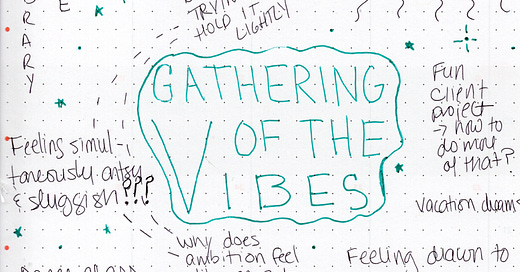 TRYING
HOLD IT
LIGHTLY
RARY
E
GATHERING
OF THE
VIBES
Fun
client
project
→ how to
do more
of that?
Feeling simul-
taneously antsy
& sluggish???
vacation dreams
why does
ambition feel
Feeling drawn to